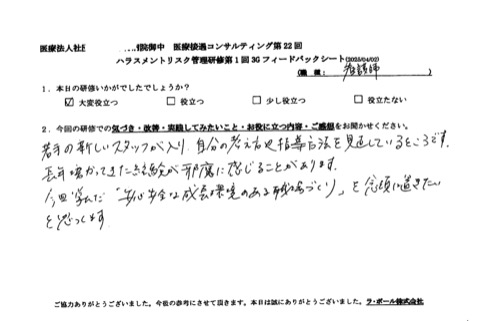 医療法人社団 院御中　医療接遇コンサルティング第22回
ハラスメントリスク管理研修第1回3Gフィードバックシート(2025/04/02)
(職種: 看護師 )
1．本日の研修いかがでしたでしょうか？
☑ 大変役立つ　□ 役立つ　□ 少し役立つ　□ 役立たない
2．今回の研修での気づき・改善・実践してみたいこと・お役に立つ内容・ご感想をお聞かせください。
若手の新しいスタッフが入り、自分の考え方や指導方法を見直しているところです。
長年培ってきた経験が邪魔に感じることがあります。
今回学んだ「安心安全な成長環境のある職場づくり」を念頭に置きたい
と思います
ご協力ありがとうございました。今後の参考にさせて頂きます。本日は誠にありがとうございました。ラ・ポール株式会社